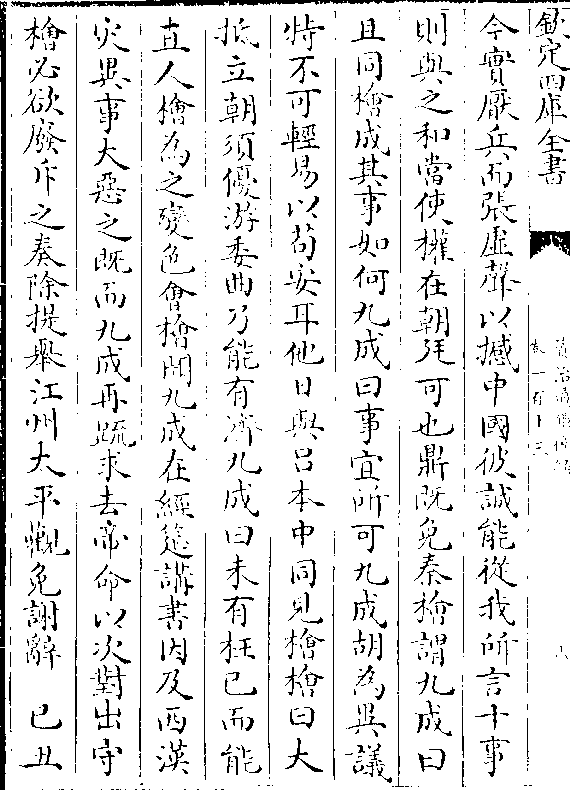 欽定四庫全書
今實厭兵而張虛聲以撼中國彼誠能從我所言十事
則與之和當使權在朝廷可也鼎既免秦檜謂九成曰
且同檜成其事如何九成曰事宜所可九成胡為異議
特不可輕易以苟安耳他日與吕本中同見檜檜曰大
抵立朝須優游委曲乃能有濟九成曰未有枉已而能
直人檜為之變色會檜聞九成在經筵講書因及西漢
災異事大惡之既而九成再䟽求去帝命以次對出守
檜必欲廢斥之奏除提舉江州太平觀免謝辭　已丑